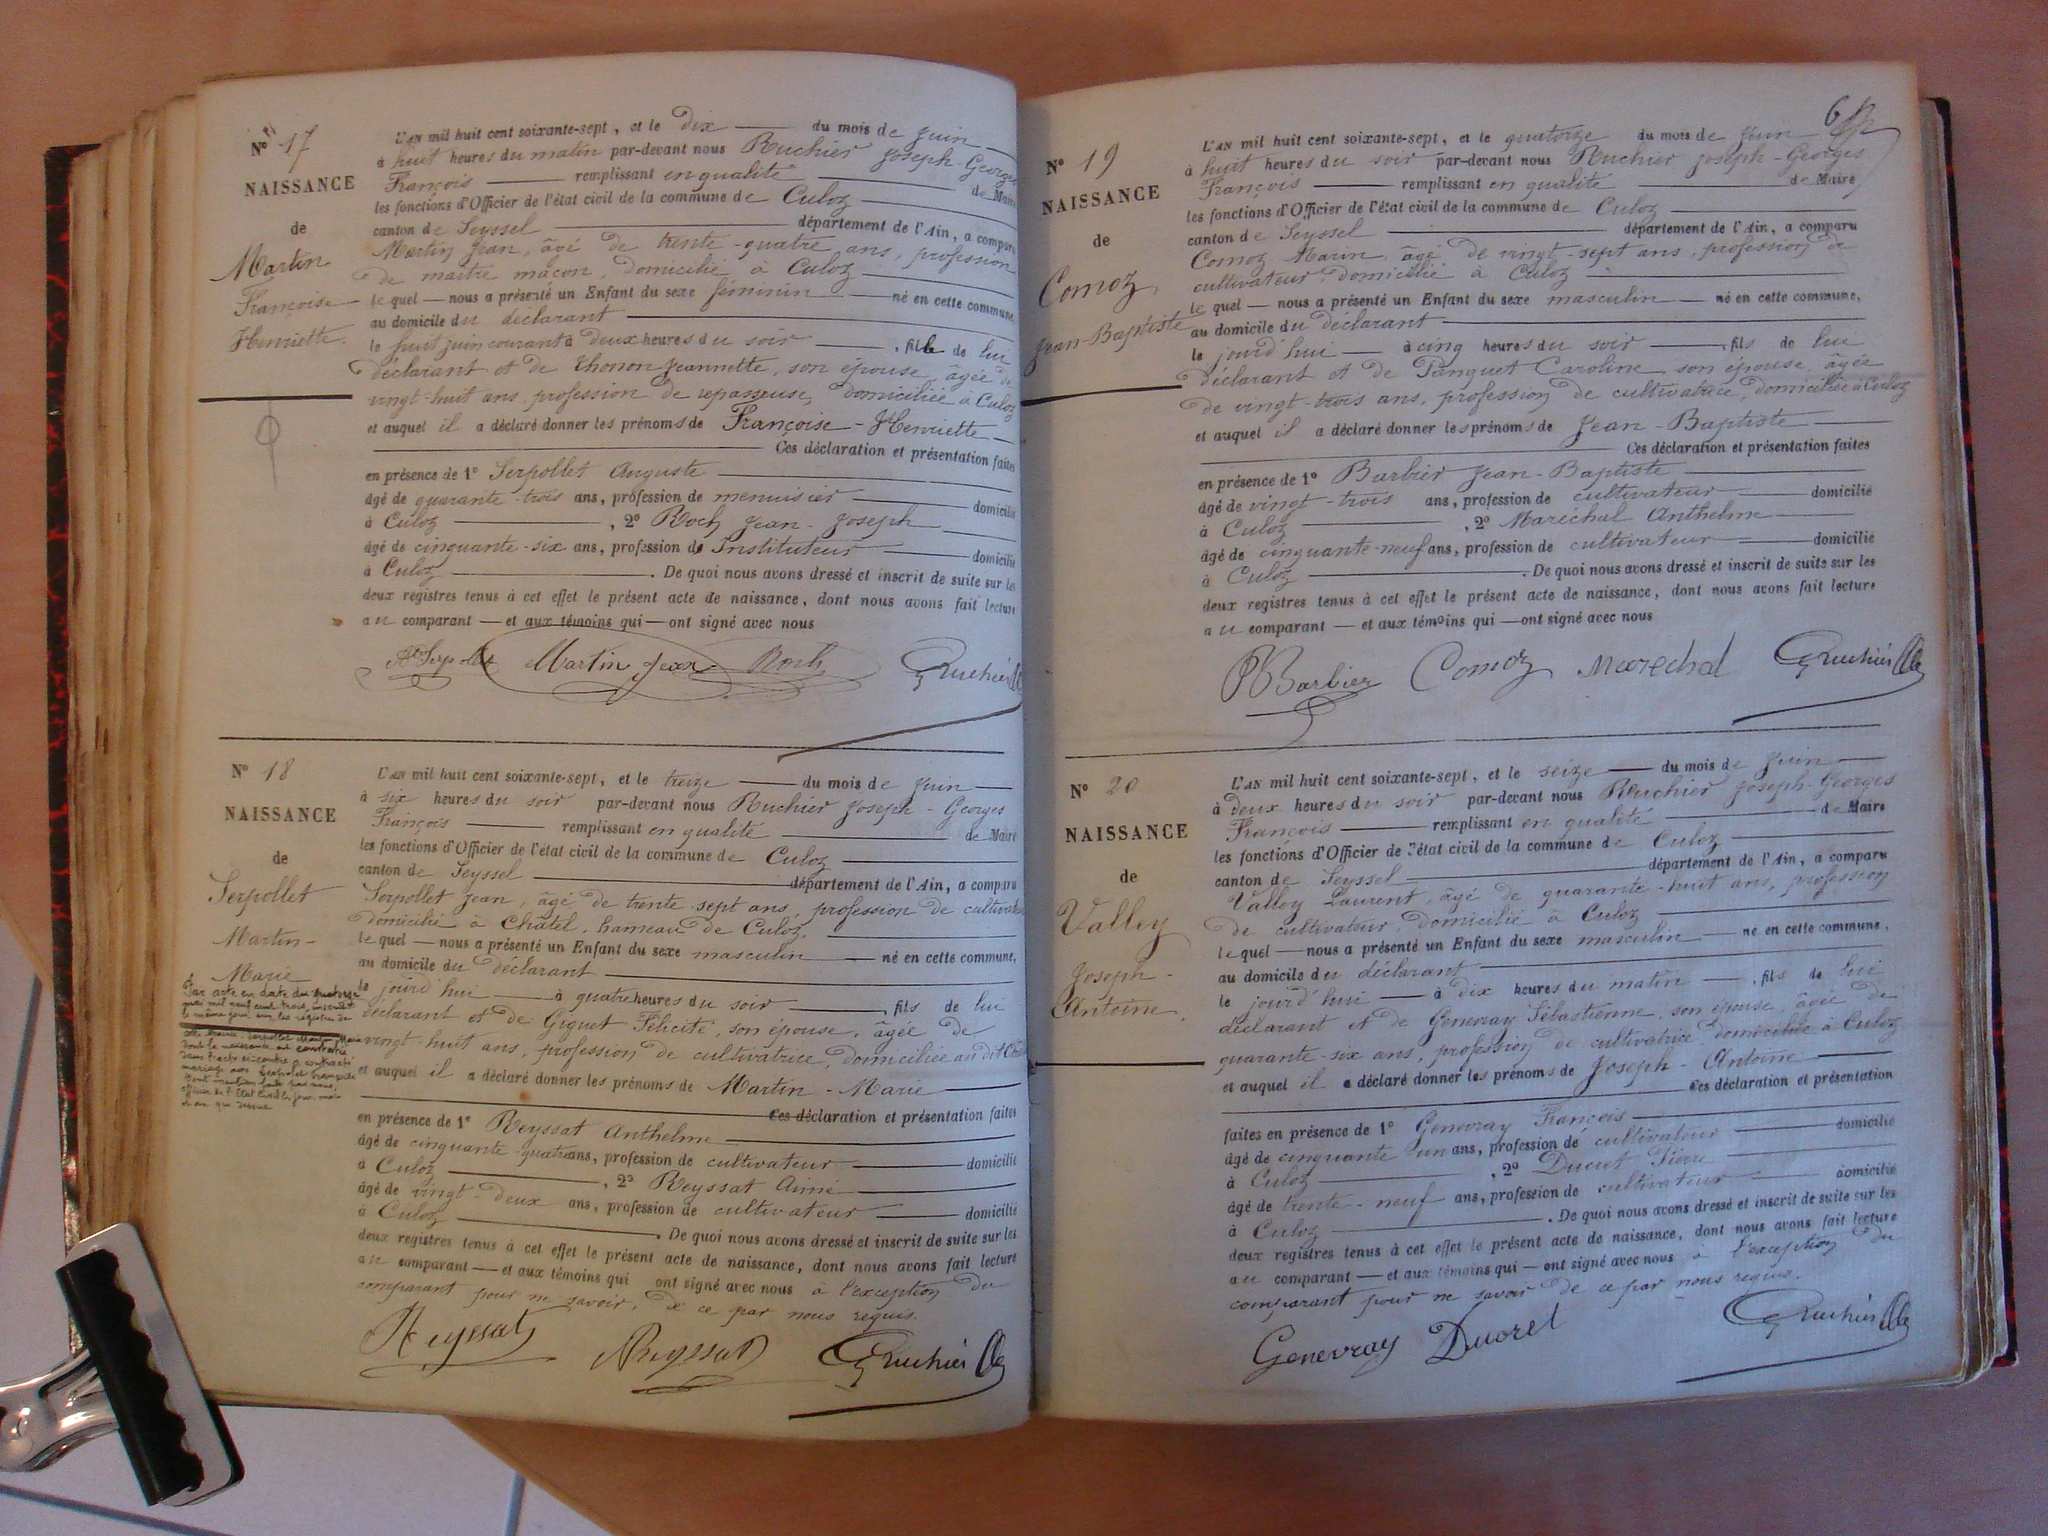 N° 17
NAISSANCE
de
Martin
Françoise
Henriette.
L'AN mil huit cent soixante-sept, et le dix du mois de juin
à huit heures du matin par-devant nous Ruchier Joseph-Georges
François remplissant en qualité de Maire
les fonctions d'Officier de l'état civil de la commune de Culoz
canton de Seyssel département de l'Ain, a comparu
Martin Jean, âgé de trente-quatre ans, profession
de maître maçon, domicilié à Culoz
le quel — nous a présenté un Enfant du sexe féminin — né en cette commune,
au domicile du déclarant
le huit juin courant à deux heures du soir , fille de lui
déclarant et de Thonon Jeannette, son épouse, âgée de
vingt-huit ans, profession de repasseuse, domiciliée à Culoz
et auquel il a déclaré donner les prénoms de Françoise-Henriette
Ces déclaration et présentation faites
en présence de 1° Serpollet Auguste
âgé de quarante-trois ans, profession de menuisier domicilié
à Culoz , 2° Roch Jean-Joseph
âgé de cinquante-six ans, profession de Instituteur domicilié
à Culoz . De quoi nous avons dressé et inscrit de suite sur les
deux registres tenus à cet effet le présent acte de naissance, dont nous avons fait lecture
au comparant — et aux témoins qui — ont signé avec nous
Serpollet Martin Jean Roch Ruchier
N° 18
NAISSANCE
de
Serpollet
Martin-
Marie
Par acte en date du
L'AN mil huit cent soixante-sept, et le treize du mois de juin
à six heures du soir par-devant nous Ruchier Joseph-Georges
François remplissant en qualité de Maire
les fonctions d'Officier de l'état civil de la commune de Culoz
canton de Seyssel département de l'Ain, a comparu
Serpollet Jean, âgé de trente-sept ans, profession de cultivateur
domicilié à Châtel, hameau de Culoz,
le quel — nous a présenté un Enfant du sexe masculin — né en cette commune,
au domicile du déclarant
le jourd'hui à quatre heures du soir , fils de lui
déclarant et de Giguet Félicité, son épouse, âgée de
vingt-huit ans, profession de cultivatrice, domiciliée au dit
et auquel il a déclaré donner les prénoms de Martin-Marie
Ces déclaration et présentation faites
en présence de 1° Reyssat Anthelme
âgé de cinquante-quatre ans, profession de cultivateur domicilié
à Culoz , 2° Reyssat Aimé
âgé de vingt-deux ans, profession de cultivateur domicilié
à Culoz . De quoi nous avons dressé et inscrit de suite sur les
deux registres tenus à cet effet le présent acte de naissance, dont nous avons fait lecture
au comparant — et aux témoins qui ont signé avec nous à l'exception du
comparant pour ne savoir, de ce par nous requis.
Reyssat Reyssat Ruchier
N° 19
NAISSANCE
de
Comoz
Jean-Baptiste
L'AN mil huit cent soixante-sept, et le quatorze du mois de juin
à huit heures du soir par-devant nous Ruchier Joseph-Georges
François remplissant en qualité de Maire
les fonctions d'Officier de l'état civil de la commune de Culoz
canton de Seyssel département de l'Ain, a comparu
Comoz Marin, âgé de vingt-sept ans, profession de
cultivateur, domicilié à Culoz
le quel — nous a présenté un Enfant du sexe masculin — né en cette commune,
au domicile du déclarant
le jourd'hui à cinq heures du soir , fils de lui
déclarant et de Panguet Caroline son épouse, âgée
de vingt-trois ans, profession de cultivatrice, domiciliée à Culoz
et auquel il a déclaré donner les prénoms de Jean-Baptiste
Ces déclaration et présentation faites
en présence de 1° Barbier Jean-Baptiste
âgé de vingt-trois ans, profession de cultivateur domicilié
à Culoz , 2° Maréchal Anthelme
âgé de cinquante-neuf ans, profession de cultivateur domicilié
à Culoz . De quoi nous avons dressé et inscrit de suite sur les
deux registres tenus à cet effet le présent acte de naissance, dont nous avons fait lecture
au comparant — et aux témoins qui — ont signé avec nous
Barbier Comoz Marechal Ruchier
N° 20
NAISSANCE
de
Valloy
Joseph-
Antoine.
L'AN mil huit cent soixante-sept, et le seize du mois de juin
à deux heures du soir par-devant nous Ruchier Joseph-Georges
François remplissant en qualité de Maire
les fonctions d'Officier de l'état civil de la commune de Culoz
canton de Seyssel département de l'Ain, a comparu
Valloy Laurent, âgé de quarante-huit ans, profession
de cultivateur, domicilié à Culoz
le quel — nous a présenté un Enfant du sexe masculin — né en cette commune,
au domicile du déclarant
le jourd'hui — à dix heures du matin , fils de lui
déclarant et de Genevray Sébastienne, son épouse, âgée de
quarante-six ans, profession de cultivatrice, domiciliée à Culoz
et auquel il a déclaré donner les prénoms de Joseph-Antoine
Ces déclaration et présentation
faites en présence de 1° Genevray François
âgé de cinquante un ans, profession de cultivateur domicilié
à Culoz , 2° Ducret Pierre
âgé de trente-neuf ans, profession de cultivateur domicilié
à Culoz . De quoi nous avons dressé et inscrit de suite sur les
deux registres tenus à cet effet le présent acte de naissance, dont nous avons fait lecture
au comparant — et aux témoins qui — ont signé avec nous à l'exception du
comparant pour ne savoir de ce par nous requis.
Genevray Ducret Ruchier